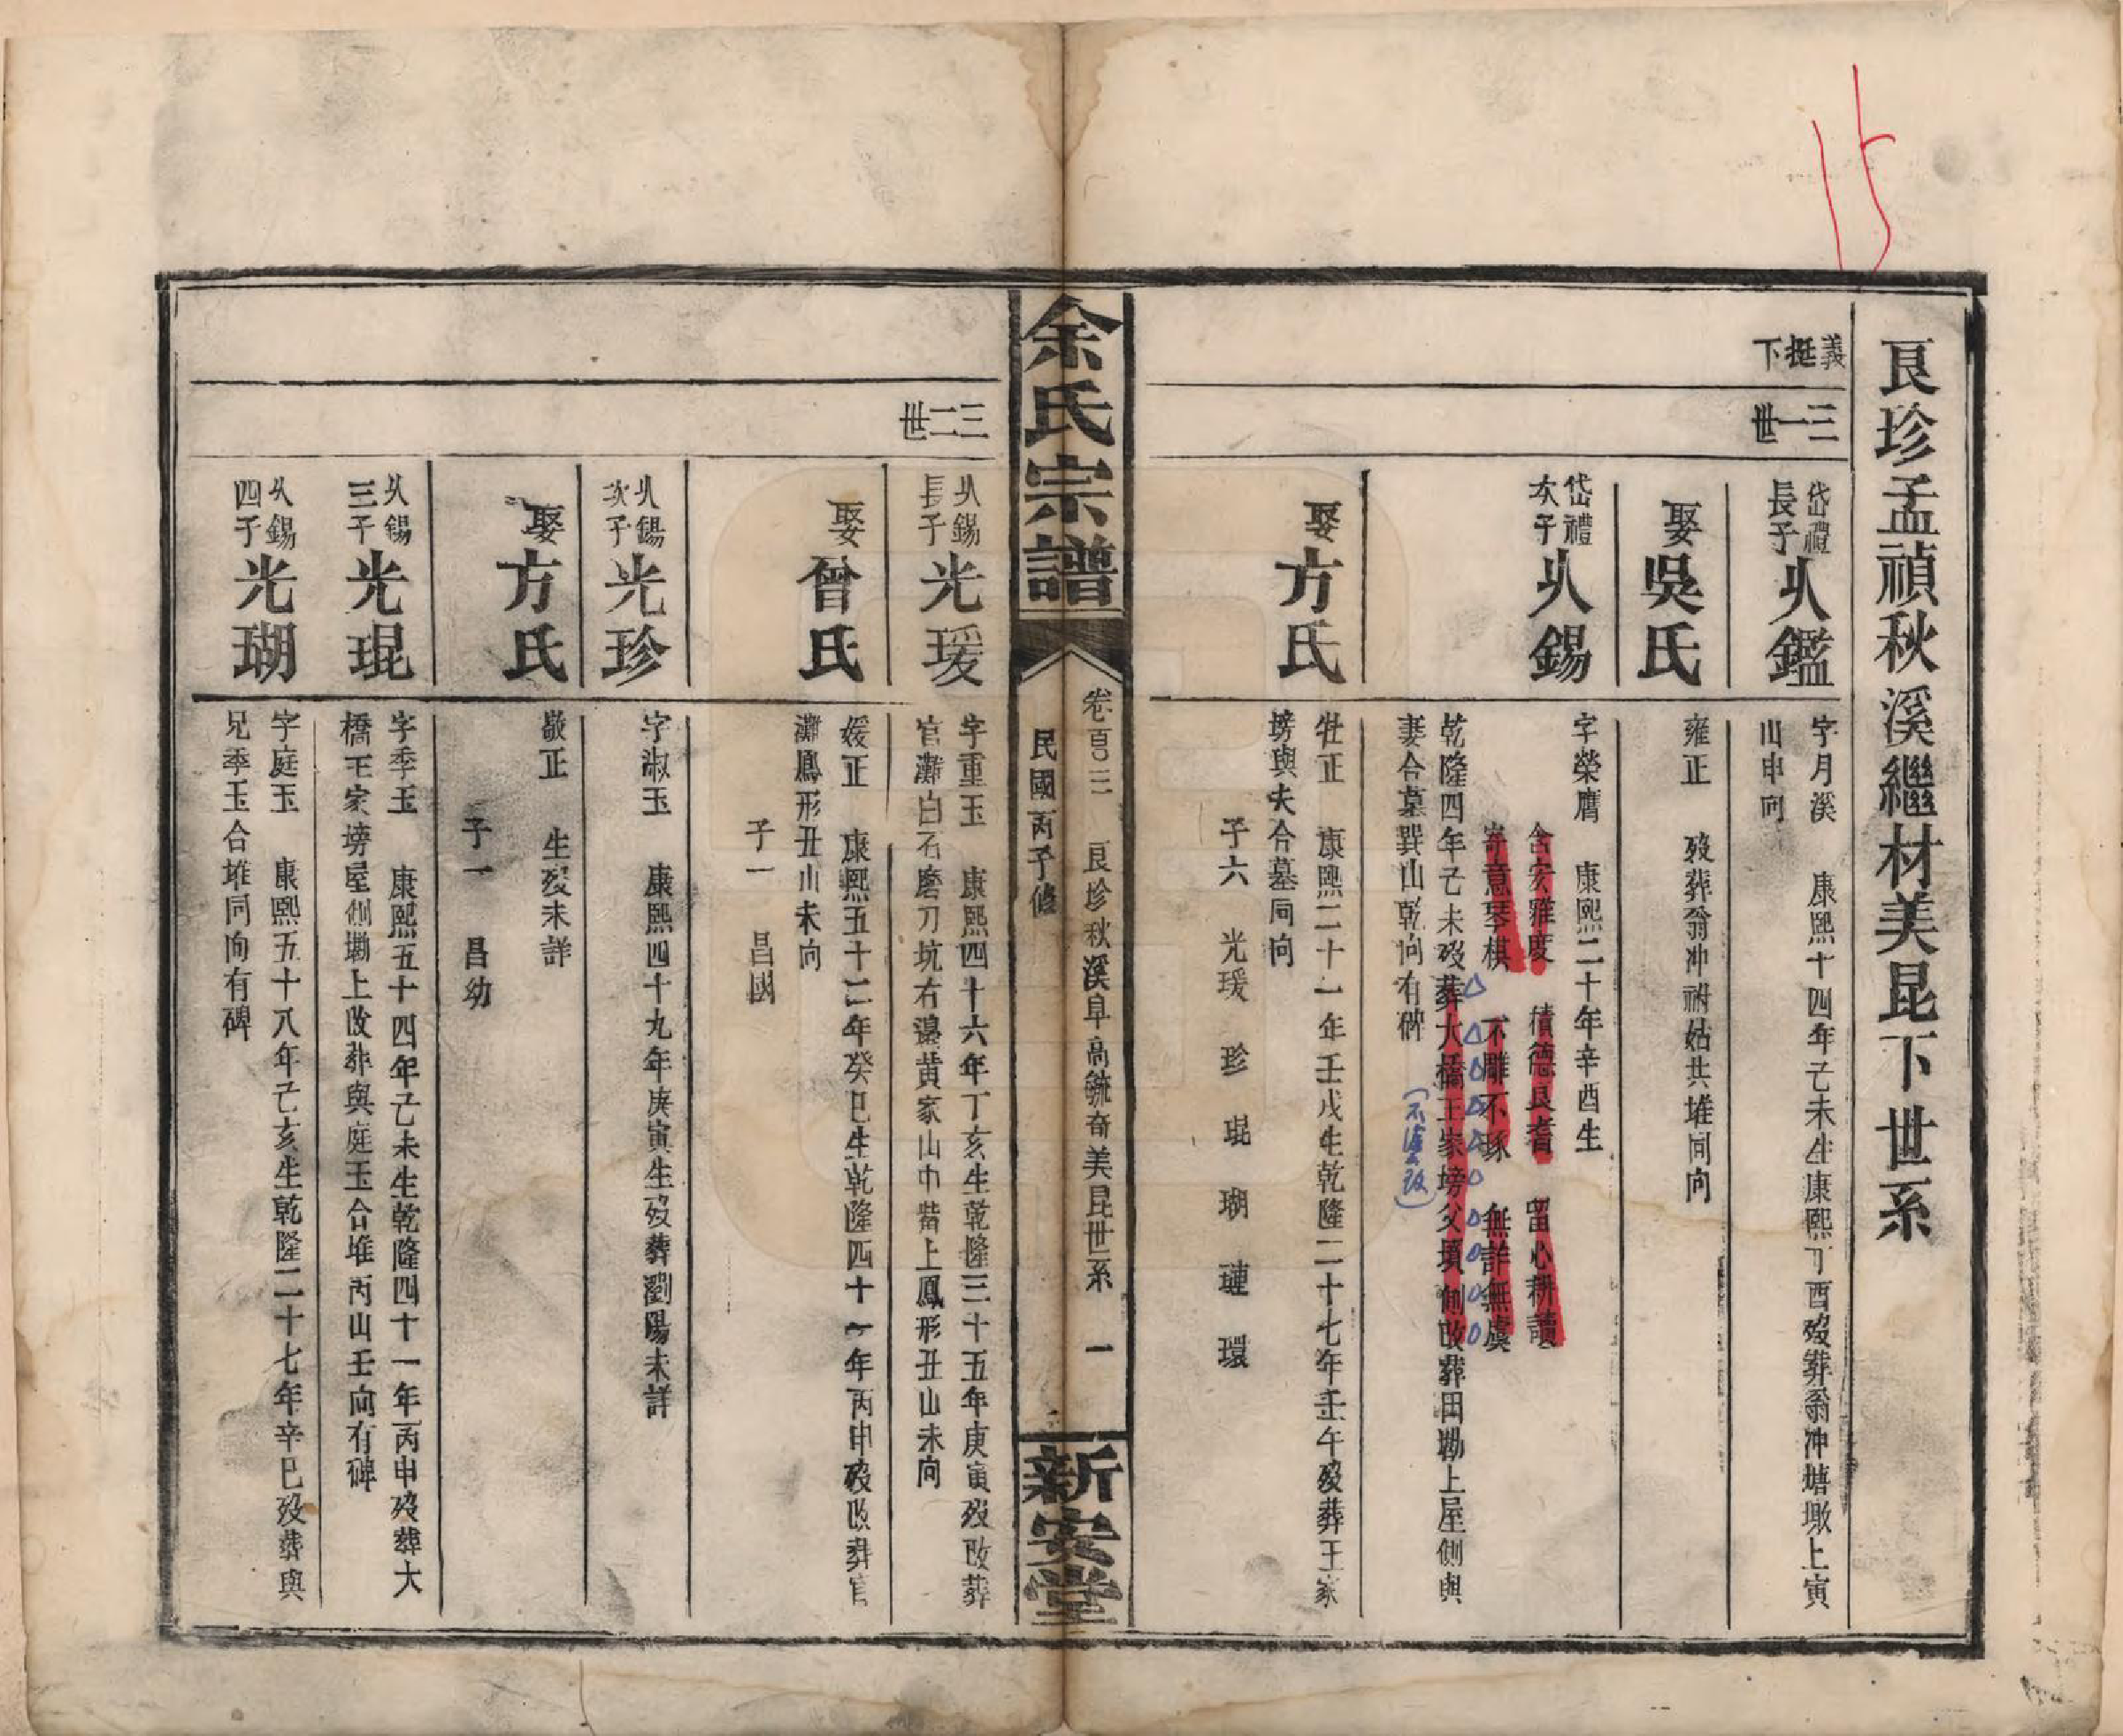 15
良珍孟禎秋溪繼材美昆下世系
義挺下
三一世
岱禮長子
㠯鑑
字月溪　康熙十四年乙未生康熙丁酉歿葬翁冲塘墩上寅
山申向
娶吳氏
雍正　歿葬翁冲祔姑共堆同向
岱禮次子
㠯錫
字榮膺　康熙二十年辛酉生
含宏雅度　積德良耆　留心耕讀
寄意琴棋　不雕不琢　無詐無虞
乾隆四年己未歿葬大橋王家塝父墳側改葬田墈上屋側與
妻合墓巽山乾向有碑
娶方氏
壯正　康熙二十一年壬戌生乾隆二十七年壬午歿葬王家
塝與夫合墓同向
子六　光瑗　珍　琨　瑚　璉　環
余氏宗譜
卷百〇三　良珍秋溪阜高毓奇美昆世系　一
民國丙子修
新安堂
三二世
㠯錫長子
光瑗
字重玉　康熙四十六年丁亥生乾隆三十五年庚寅歿改葬
官灘白石磨刀坑右邊黃家山中嘴上鳳形丑山未向
娶曾氏
媛正　康熙五十二年癸巳生乾隆四十一年丙申歿改葬官
灘鳳形丑山未向
子一　昌國
㠯錫次子
光珍
字淑玉　康熙四十九年庚寅生歿葬瀏陽未詳
娶方氏
敬正　生歿未詳
子一　昌幼
㠯錫三子
光琨
字季玉　康熙五十四年乙未生乾隆四十一年丙申歿葬大
橋王家塝屋側墈上改葬與庭玉合堆丙山壬向有碑
㠯錫四子
光瑚
字庭玉　康熙五十八年己亥生乾隆二十七年辛巳歿葬與
兄季玉合堆同向有碑